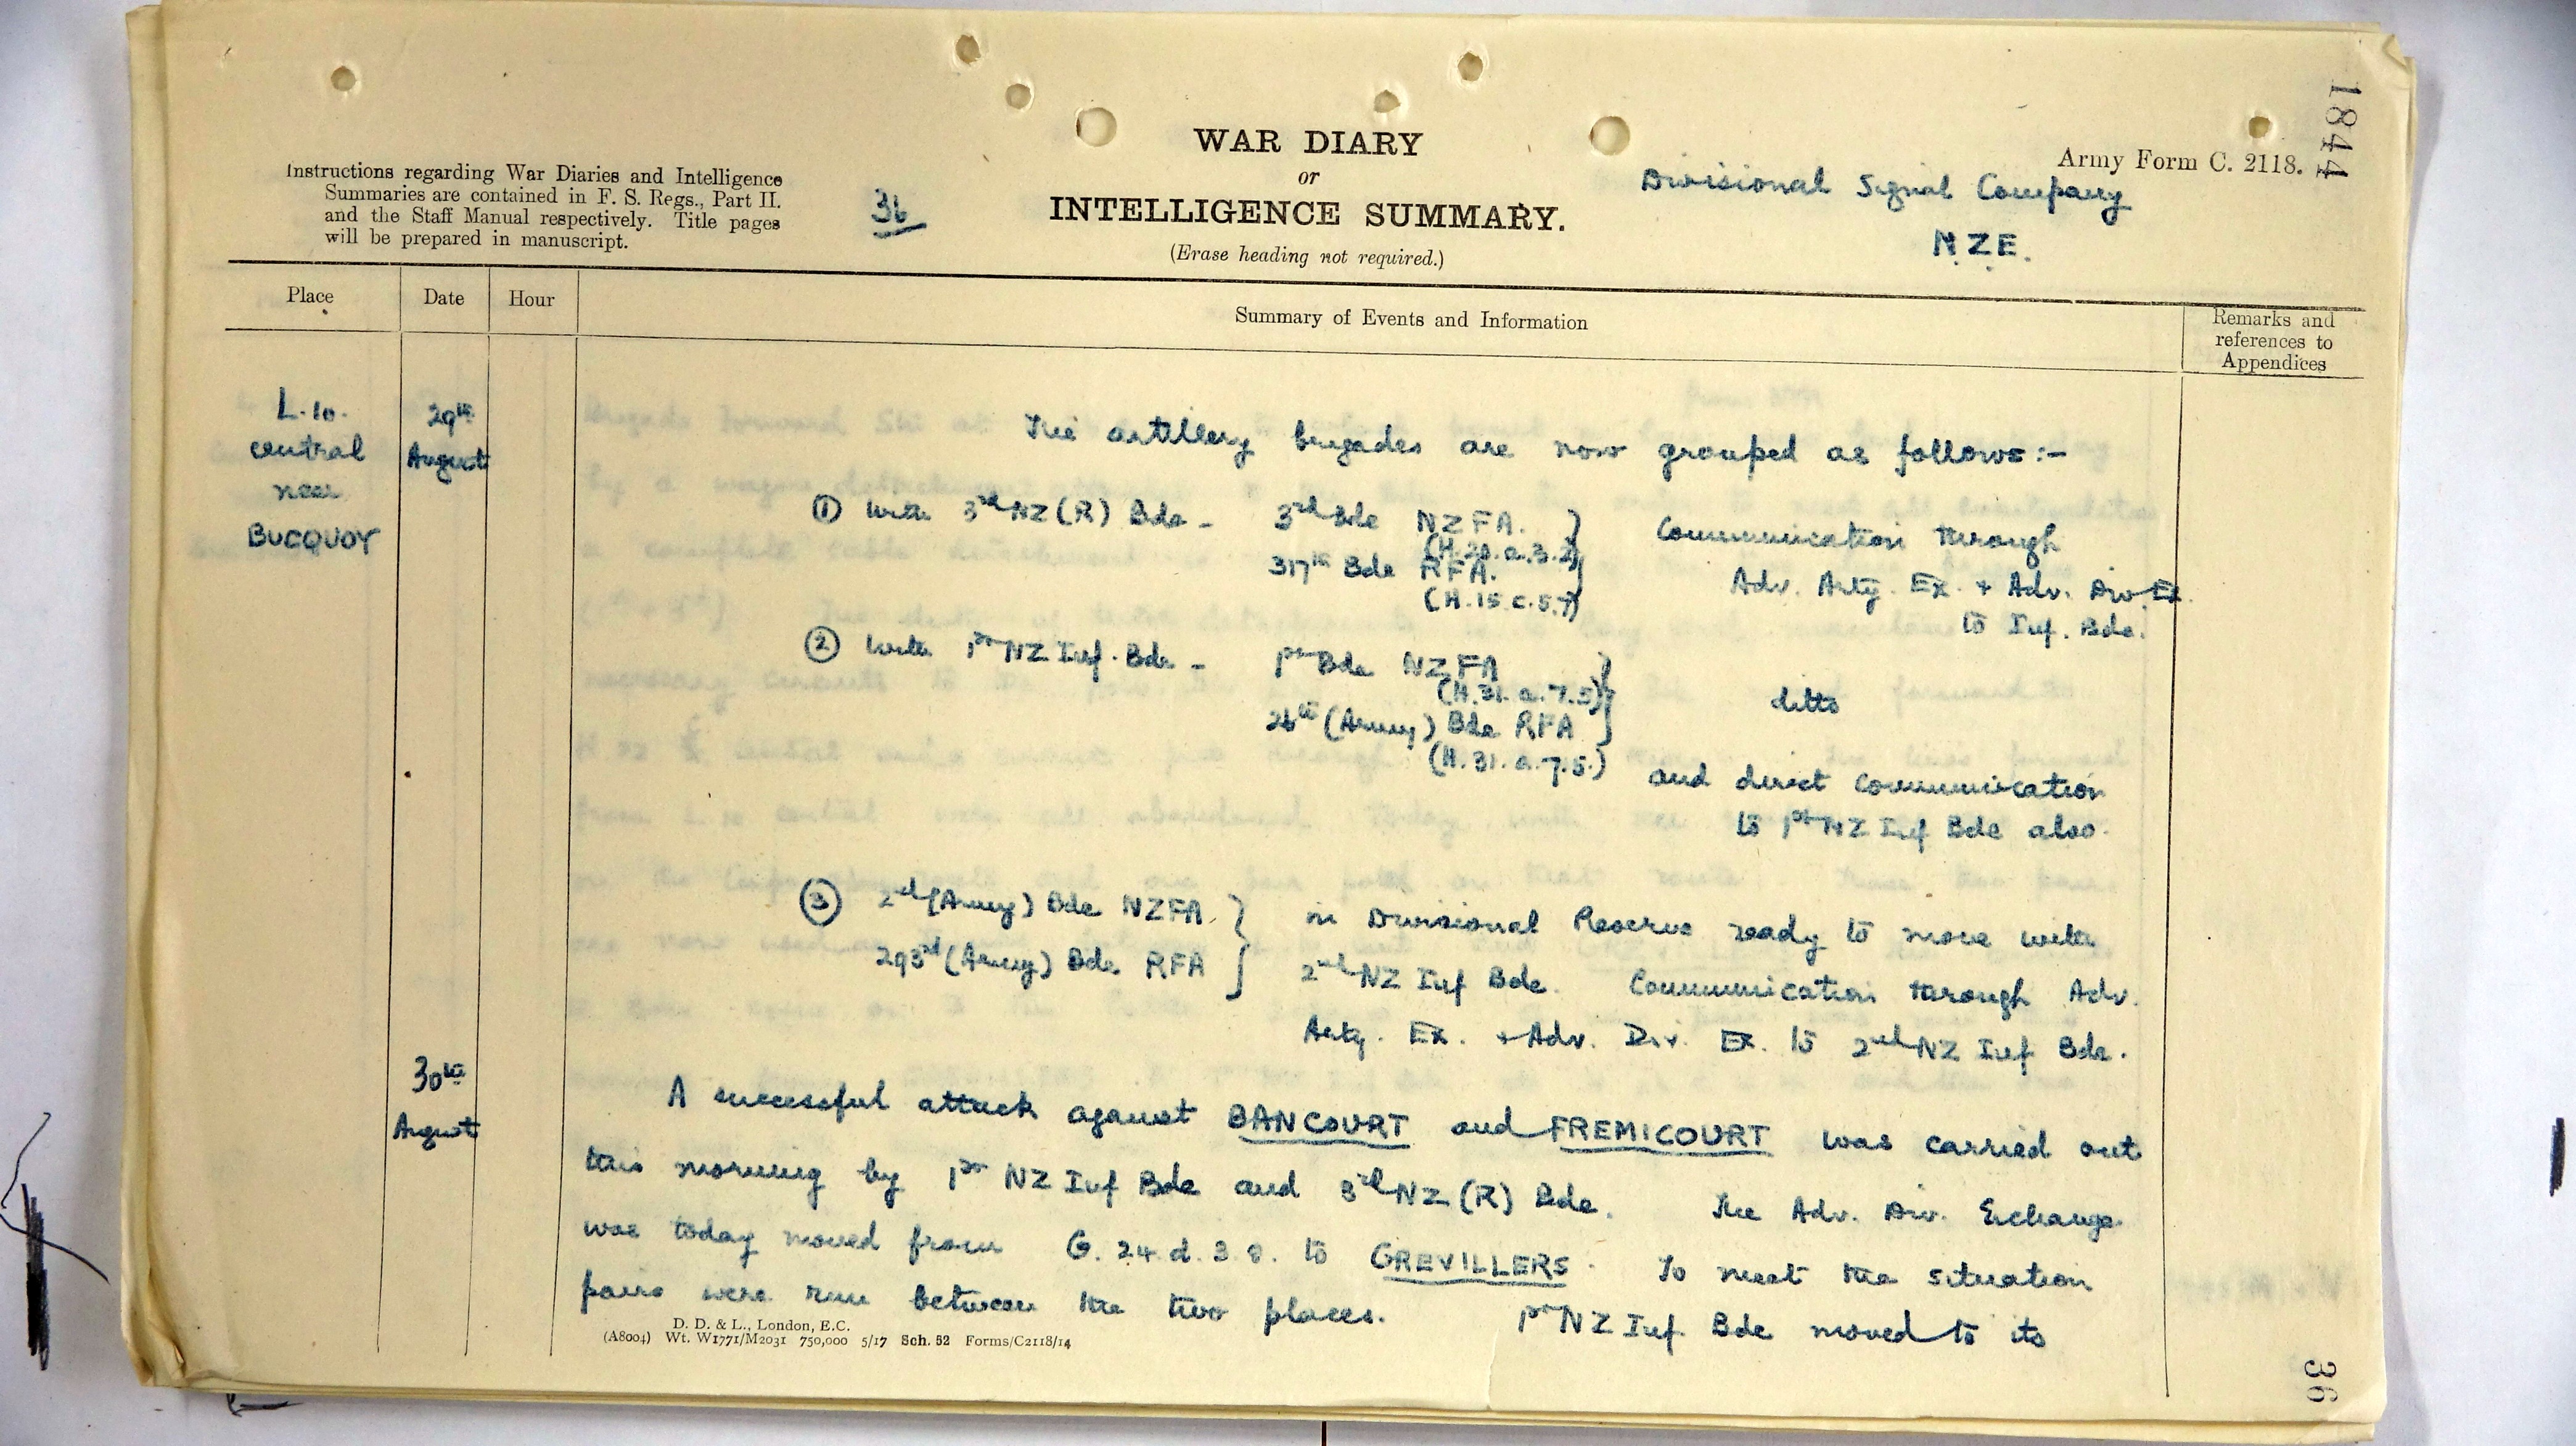 1844
Army Form C. 2118.
WAR DIARY
or
INTELLIGENCE SUMMARY.
(Erase heading not required.)
Instructions regarding War Diaries and Intelligence
Summaries are contained in F. S. Regs., Part II.
and the Staff Manual respectively. Title pages
will be prepared in manuscript.
36
Divisional Signal Company
N.Z.E.
Place
Date
Hour
Summary of Events and Information
Remarks and
references to
Appendices
L.10.
central
near
BUCQUOY
29th
August
The artillery brigades are now grouped as follows:-
① With 3rd NZ(R) Bde - 3rd Bde NZFA.
(H.20.a.3.2)
317th Bde RFA.
(H.15.c.5.7)
Communication through
Adv. Arty. Ex. + Adv. Div. Ex.
to Inf. Bde.
② With 1st NZ Inf. Bde - 1st Bde NZFA
(H.31.a.7.5)
26th (Army) Bde RFA
(H.31.a.7.5.)
ditto
and direct communication
to 1st NZ Inf Bde also.
③ 2nd (Army) Bde NZFA.
293rd (Army) Bde. RFA
in Divisional Reserve ready to move with
2nd NZ Inf Bde. Communication through Adv.
Arty. Ex. + Adv. Div. Ex. to 2nd NZ Inf Bde.
30th
August
A successful attack against BANCOURT and FREMICOURT was carried out
this morning by 1st NZ Inf Bde and 3rd NZ (R) Bde. The Adv. Div. Exchange
was today moved from G.24.d.3.8. to GREVILLERS. To meet the situation
pairs were run between the two places. 1st NZ Inf. Bde moved to its
D. D. & L., London, E.C.
(A8004) Wt. W1771/M2031 750,000 5/17 Sch. 52 Forms/C2118/14
36